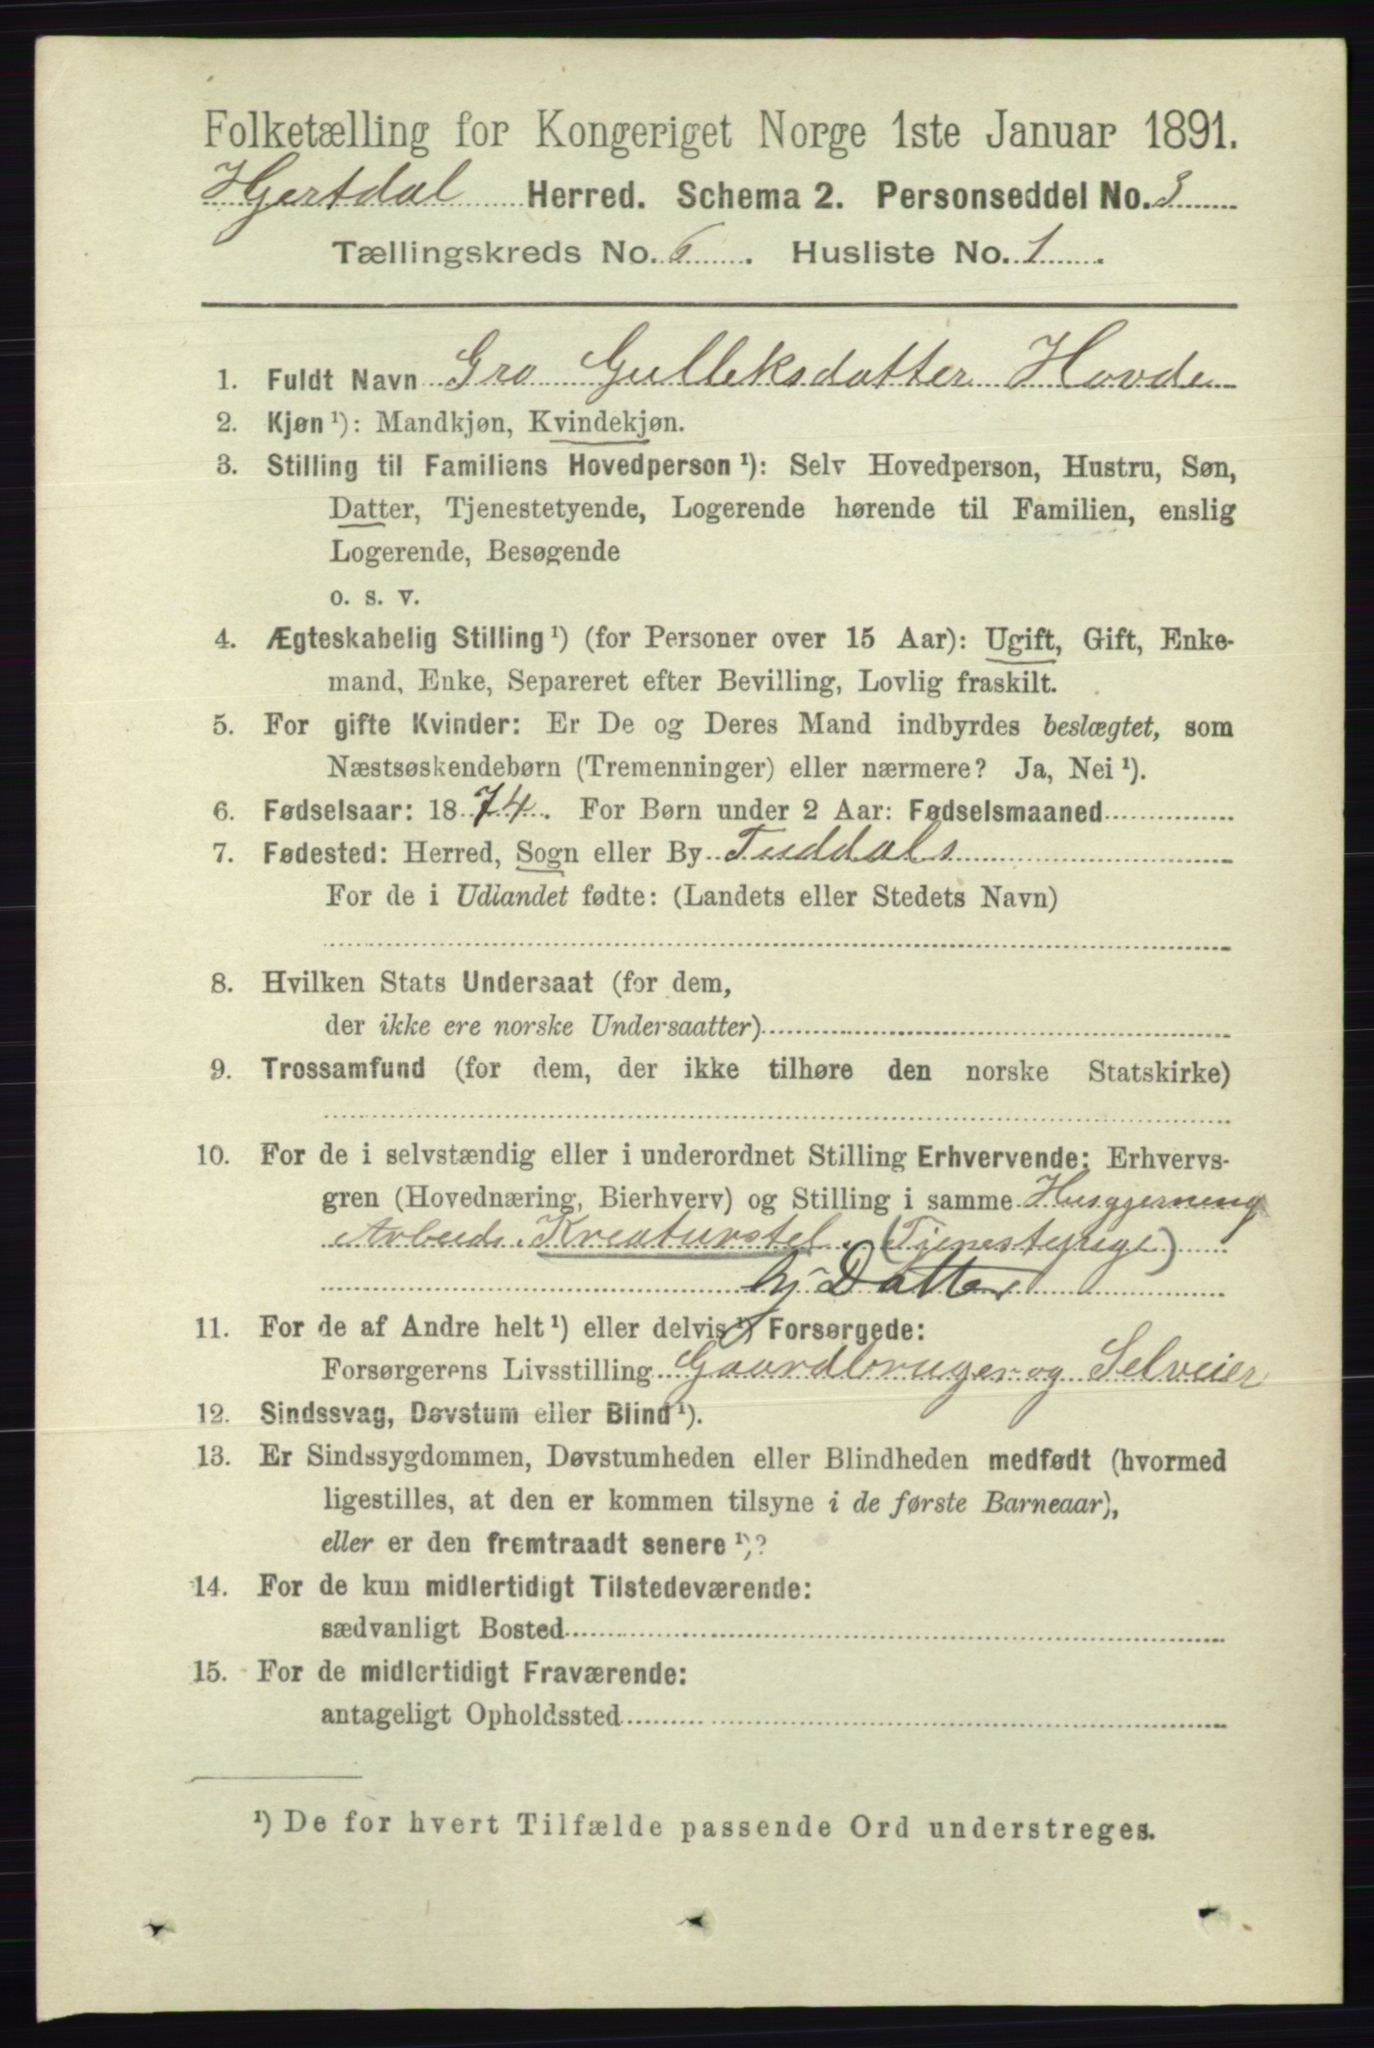 Folketælling for Kongeriget Norge 1ste Januar 1891.
Hjertdal Herred. Schema 2. Personseddel No. 3
Tællingskreds No. 6. Husliste No. 1.
1. Fuldt Navn Gro Gulleksdatter Hovde
2. Kjøn ¹): Mandkjøn, Kvindekjøn.
3. Stilling til Familiens Hovedperson ¹): Selv Hovedperson, Hustru, Søn,
Datter, Tjenestetyende, Logerende hørende til Familien, enslig
Logerende, Besøgende
o. s. v.
4. Ægteskabelig Stilling ¹) (for Personer over 15 Aar): Ugift, Gift, Enke-
mand, Enke, Separeret efter Bevilling, Lovlig fraskilt.
5. For gifte Kvinder: Er De og Deres Mand indbyrdes beslægtet, som
Næstsøskendebørn (Tremenninger) eller nærmere? Ja, Nei ¹).
6. Fødselsaar: 1874. For Børn under 2 Aar: Fødselsmaaned
7. Fødested: Herred, Sogn eller By Tuddals
For de i Udlandet fødte: (Landets eller Stedets Navn)
8. Hvilken Stats Undersaat (for dem,
der ikke ere norske Undersaatter)
9. Trossamfund (for dem, der ikke tilhøre den norske Statskirke)
10. For de i selvstændig eller i underordnet Stilling Erhvervende: Erhvervs-
gren (Hovednæring, Bierhverv) og Stilling i samme Husgjerning
Arbeide. Kreaturstel. (Tjenestepige)
hj. Datter
11. For de af Andre helt ¹) eller delvis ¹) Forsørgede:
Forsørgerens Livsstilling Gaardbruger og Selveier
12. Sindssvag, Døvstum eller Blind ¹).
13. Er Sindssygdommen, Døvstumheden eller Blindheden medfødt (hvormed
ligestilles, at den er kommen tilsyne i de første Barneaar),
eller er den fremtraadt senere ¹)?
14. For de kun midlertidigt Tilstedeværende:
sædvanligt Bosted
15. For de midlertidigt Fraværende:
antageligt Opholdssted
¹) De for hvert Tilfælde passende Ord understreges.